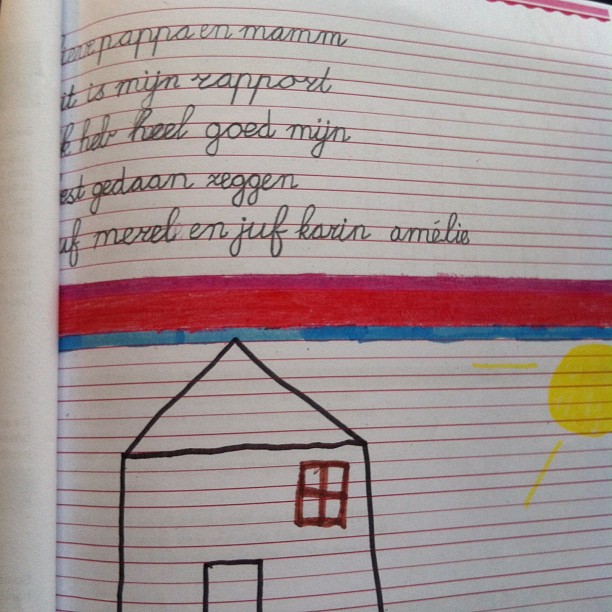 lieve pappa en mamm
it is mijn rapport
k heb heel goed mijn
est gedaan zeggen
uf merel en juf karin amélie